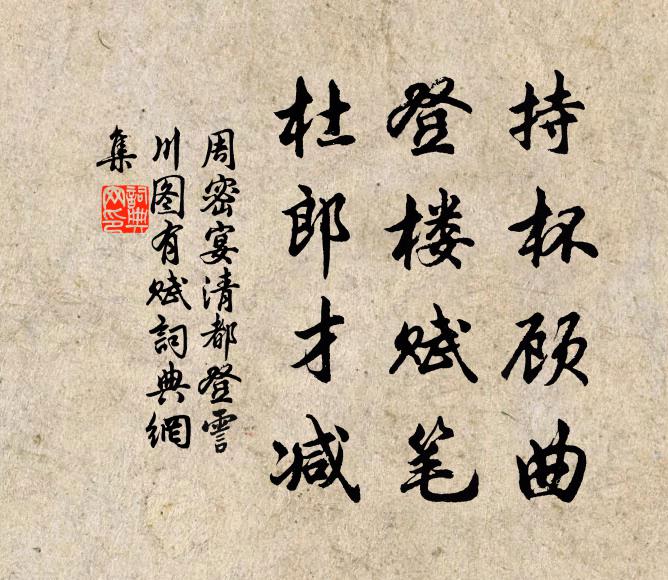 持杯顾曲
登楼赋笔
杜郎才减
周密宴清都登霅
川图有赋詞典網
集
詞典網印